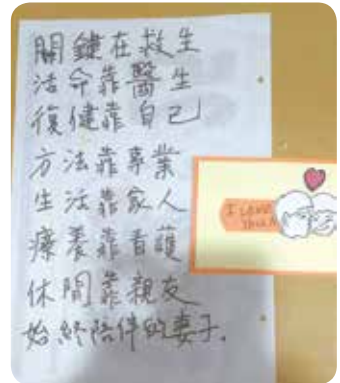 關鍵在救生
活命靠醫生
復健靠自己
方法靠專業
生活靠家人
療養靠看護
休閒靠親友
始終陪伴的妻子.
I Love
You